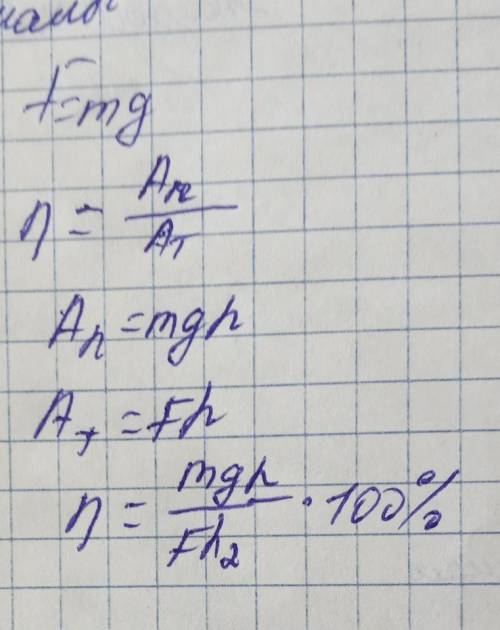 F=mg
η = Aп / Aт
Aп = mgh
Aт = Fh
η = mgh / Fh₂ · 100%